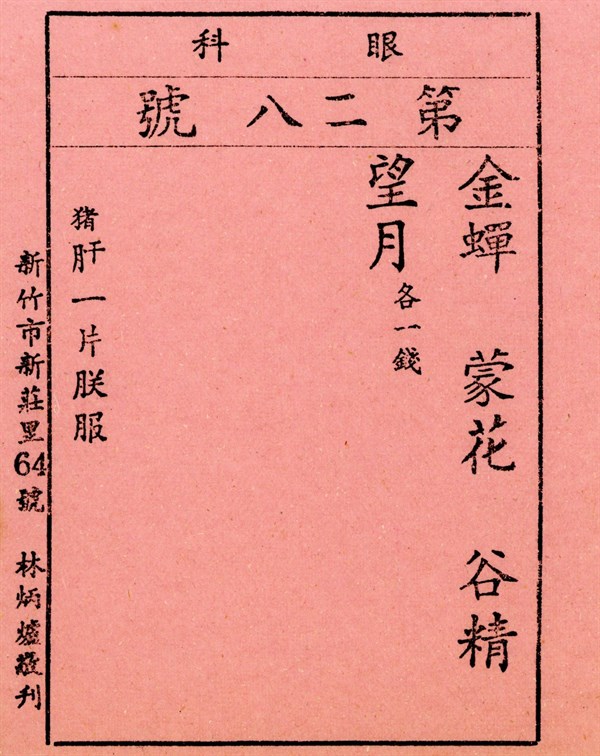 眼科
第二八號
金蟬 蒙花 谷精
望月各一錢
猪肝一片朕服
新竹市新莊里64號 林炳爐敬刊